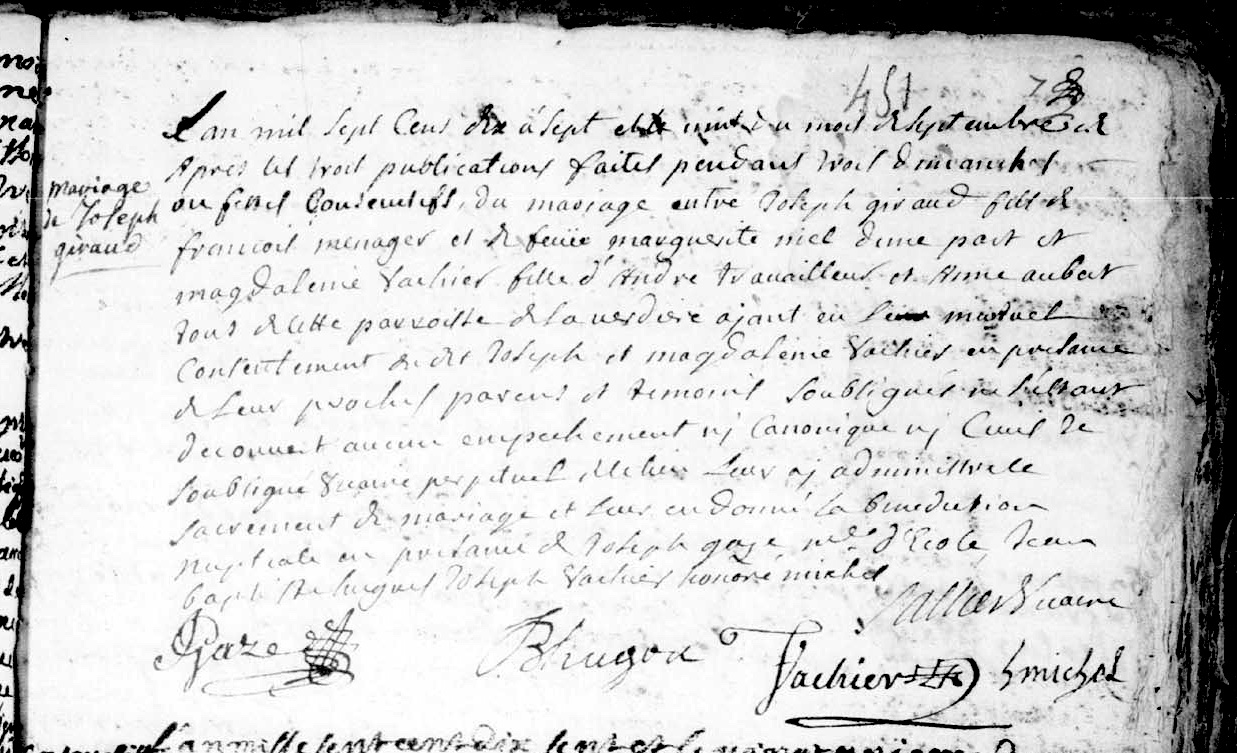 451
L'an mil sept Cens dix à sept et le vint du mois de septembre et
Apres les trois publications faites pendans trois dimanches
ou festes Consecutifs, du mariage entre Joseph giraud fils de
francois menager et de feüe marguerite niel d'une part et
magdaleine Vachier fille d'André travailleur et Anne aubert
tous de cette parroisse de La verdiere ajant eu leur mutuel
Consentement du dit Joseph et magdaleine Vachier en presance
de Leur proches parens et temoins soubsignés ne s'estant
decouvert aucun empechement nj Canonique nj Civil Je
soubsigné Vicaire perpetuel du lieu Leur aj administré le
sacrement de mariage et Leur en donné La benediction
nuptiale en presance de Joseph gaze, d'Ecole, Jean
baptiste hugou Joseph Vachier honoré michel
mariage
de Joseph
giraud
Vicaire
Jgaze
Bhugou
Vachier
hmichel
L'an mille sept cent dix sept et le